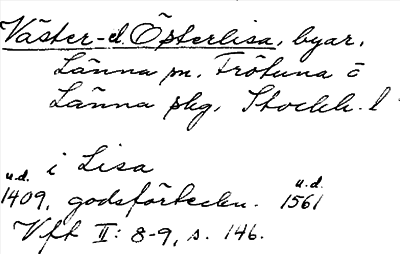 Väster- o. Österlisa, byar,
Länna sn, Frötuna o
Länna skg, Stockh. l
i Lisa
u.d. u.d.
1409, godsförteckn. 1561
Vft II: 8-9, s. 146.